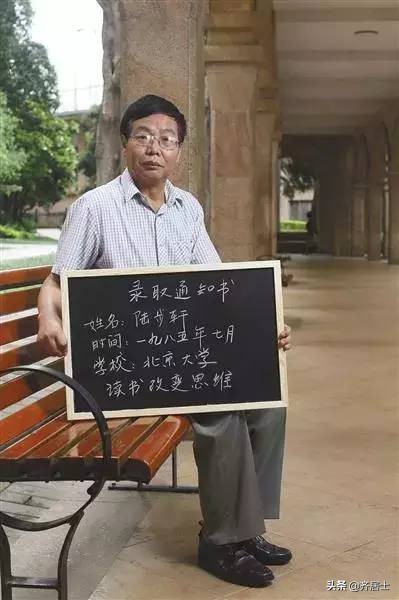 录取通知书
姓名：陆步轩
时间：一九八五年七月
学校：北京大学
读书改变思维
头条 @齐居士